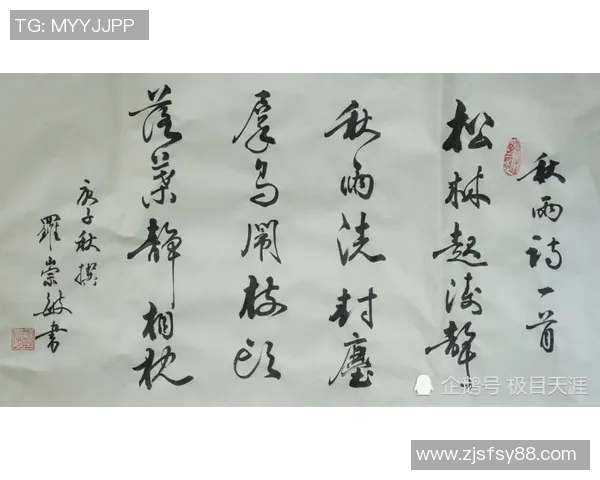 TG: MYYJJPP
秋雨诗一首
松林起涛聲
秋雨洗封塵
群鸟闹枝頭
落葉静相枕
庚子秋撰
羅崇敏书
企鹅号 极目天涯
www.zjsfsy88.com